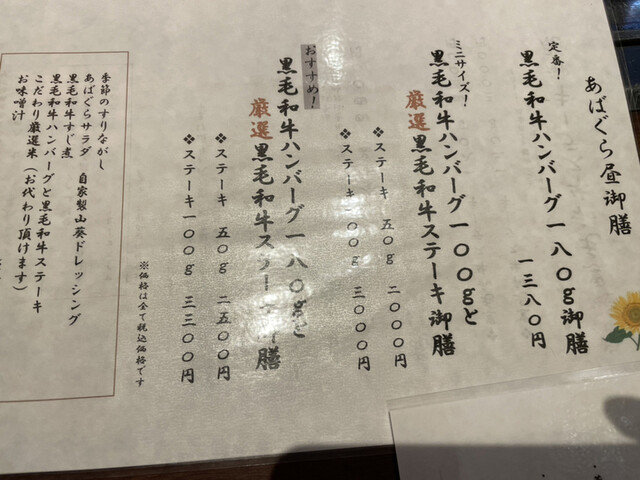 あばぐら昼御膳
定番！
黒毛和牛ハンバーグ一八〇g御膳
一三八〇円
ミニサイズ！
黒毛和牛ハンバーグ一〇〇gと
厳選黒毛和牛ステーキ御膳
❖ステーキ 五〇g 二〇〇〇円
❖ステーキ一〇〇g 三〇〇〇円
おすすめ！
黒毛和牛ハンバーグ一八〇gと
厳選黒毛和牛ステーキ御膳
❖ステーキ 五〇g 二五〇〇円
❖ステーキ一〇〇g 三三〇〇円
※価格は全て税込価格です
季節のすりながし
あばぐらサラダ 自家製山葵ドレッシング
黒毛和牛すじ煮
黒毛和牛ハンバーグと黒毛和牛ステーキ
こだわり厳選米（お代わり頂けます）
お味噌汁